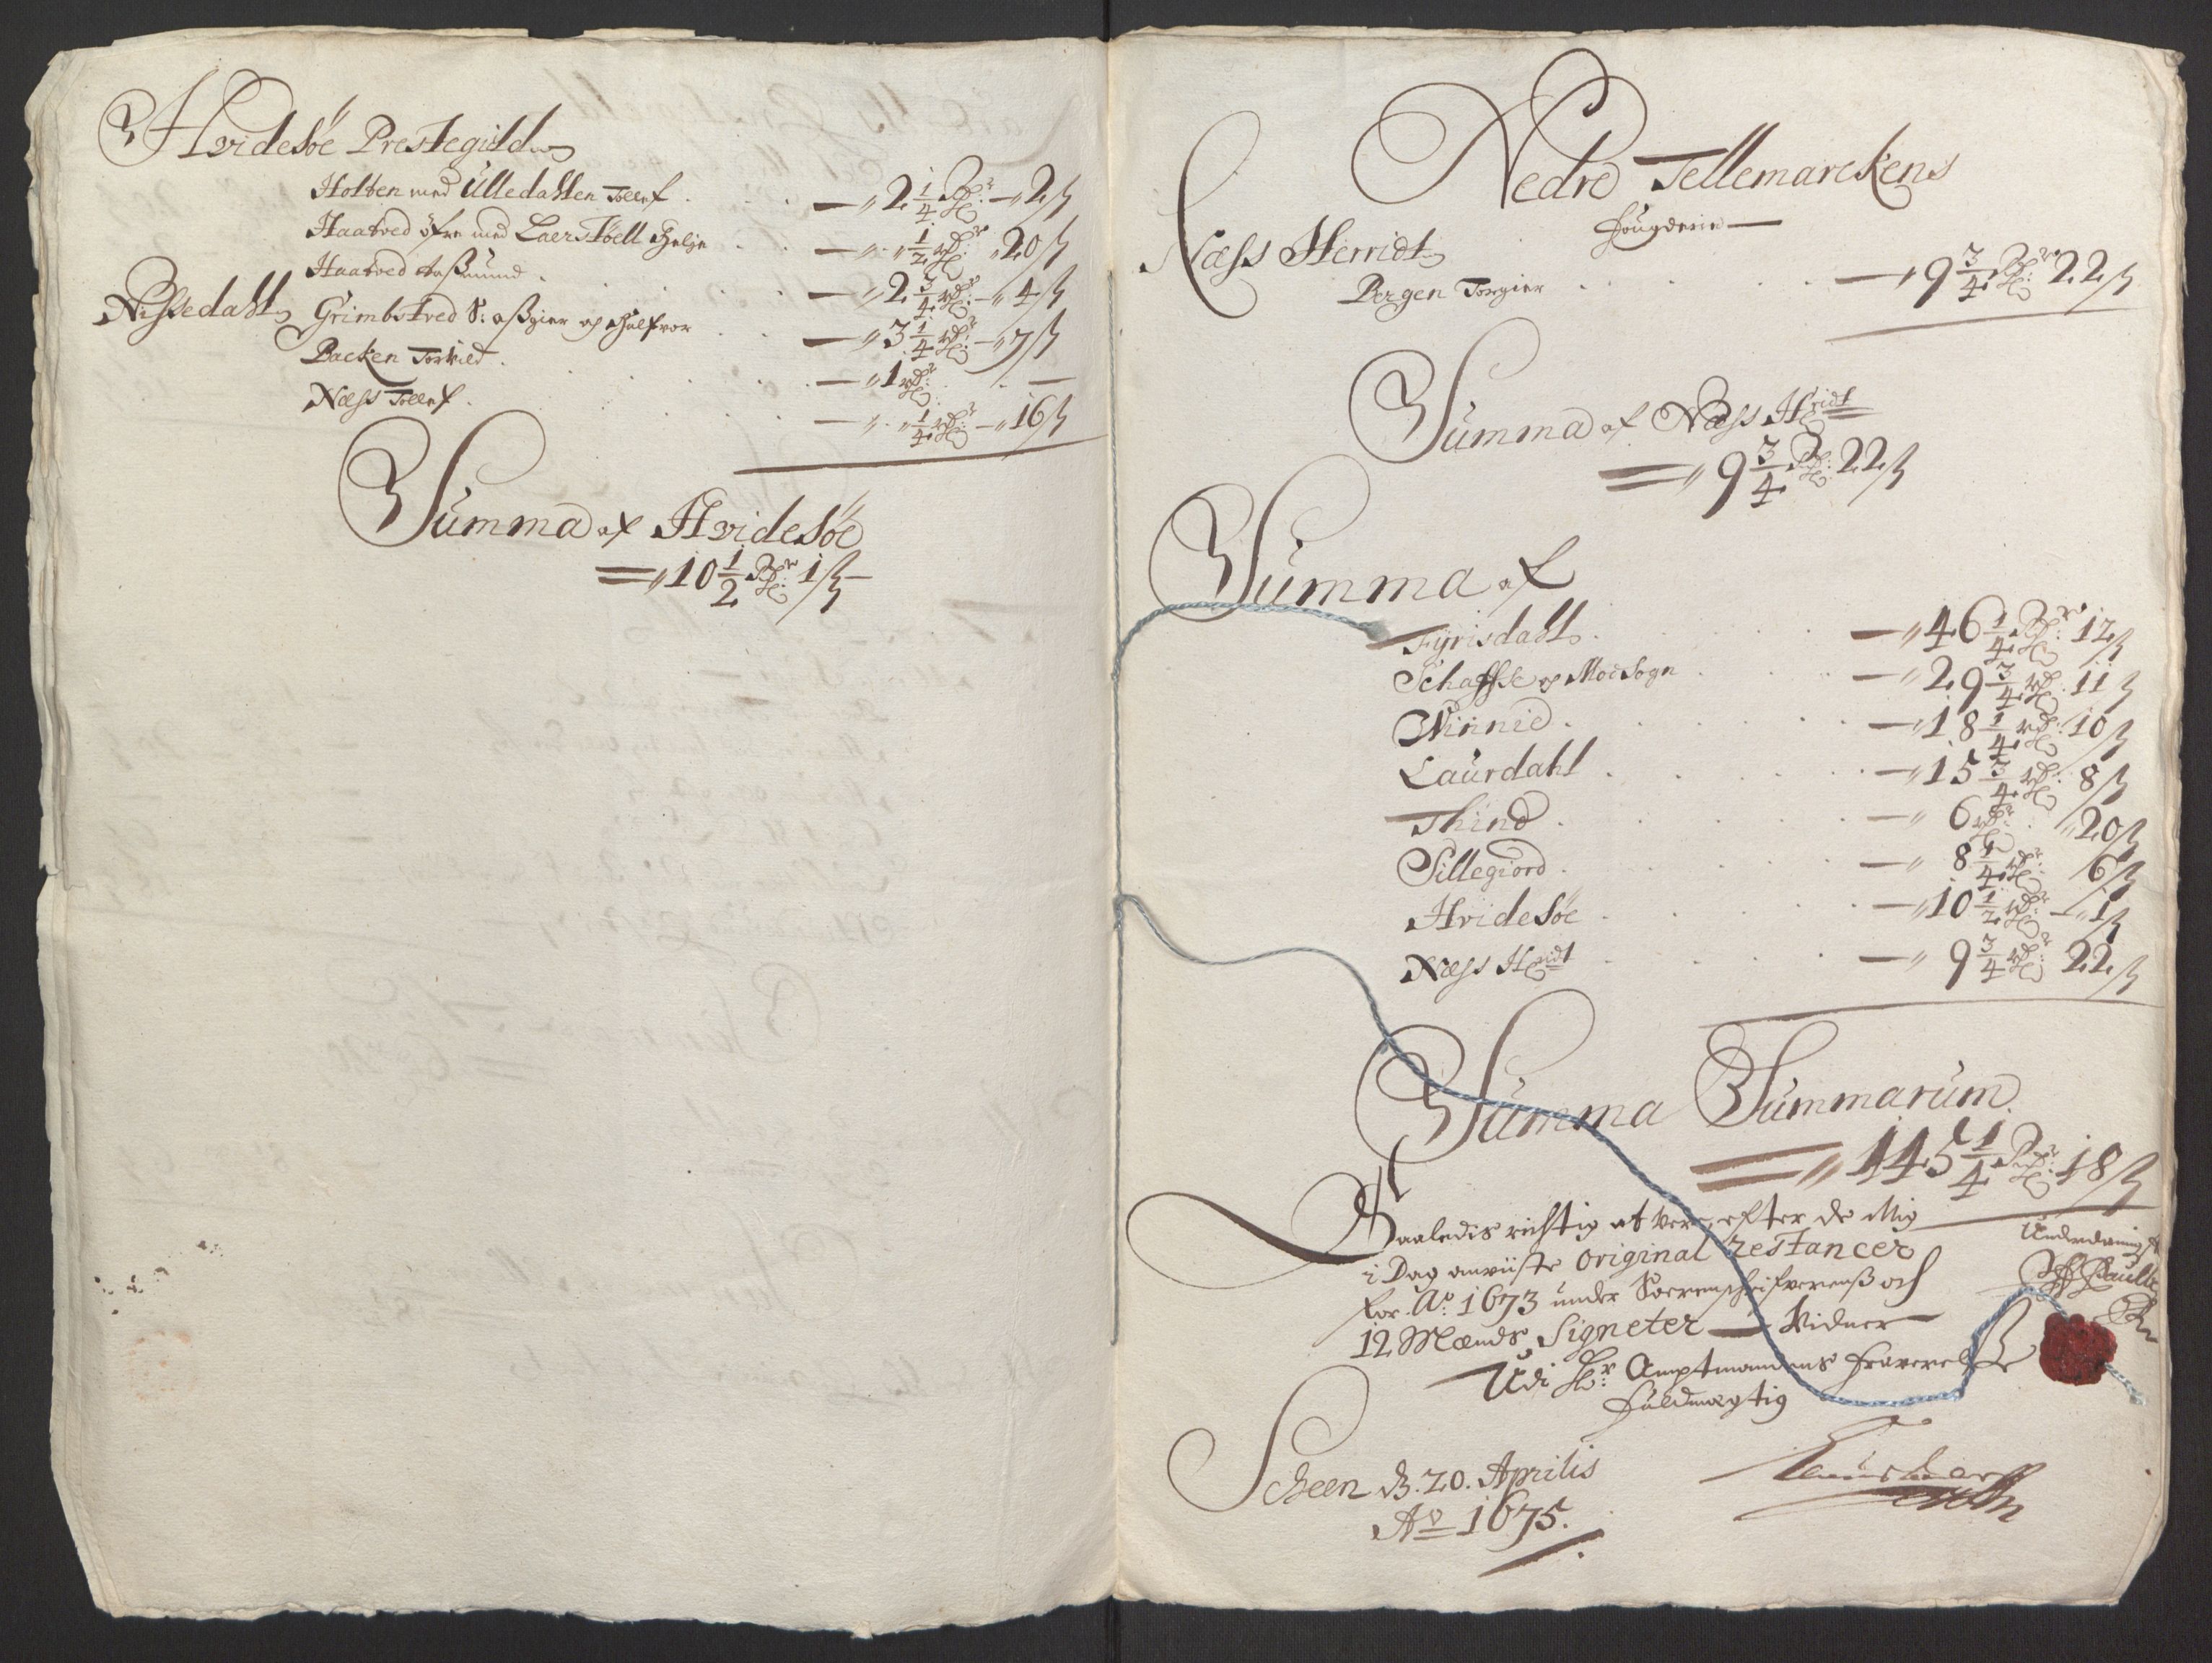 Hvidesöe Prestegield
Holten med Ulledahlen Tollef . . — 2 1/4 Rdr — 2 ß
Haatved öfre med Laerstöell Helje . . — 1/2 rdr 20 ß
Haatved Aßmund . . . — 2 3/4 rdr — 4 ß
Nissedahl Grimbstved S: Aßgier og Halfvor . . — 3 1/4 rdr — 7 ß
Backen Torkild . . . — 1 rdr . —
Næss Tollef . . . — 1/4 rdr — 16 ß
Summa af Hvidesöe
10 1/2 Rdr 1 ß
Nedre Tellemarckens
Fougderie —
Næss Herridt
Bergen Torgier . . . — 9 3/4 Rdr 22 ß
Summa af Næss Hridt
9 3/4 Rdr 22 ß
Summa af
Fyrisdahl . . . — 46 1/4 Rdr 12 ß
Schaffse og Moe Sogn . . . — 29 3/4 rdr 11 ß
Winnie . . . — 18 1/4 rdr 10 ß
Laurdahl . . . — 15 3/4 rdr 8 ß
Thind . . . — 6 rdr 20 ß
Sillegiord . . . — 8 1/4 rdr 6 ß
Hvidesöe . . . — 10 1/2 rdr — 1 ß
Næss Hridt . . . — 9 3/4 rdr 22 ß
Summa Summarum
145 1/4 Rdr 18 ß
Saaledis richtig at vere, efter de Mig
i Dag anviiste original restancer
for Ao. 1673 under Soerenschrifverenß och
12 Mænds Signeter — Vidner —
Underdanigst
Udi Hr. Amptmandens fraverelße
fuldmegtig
Scheen d. 20. Aprilis
Ao 1675.